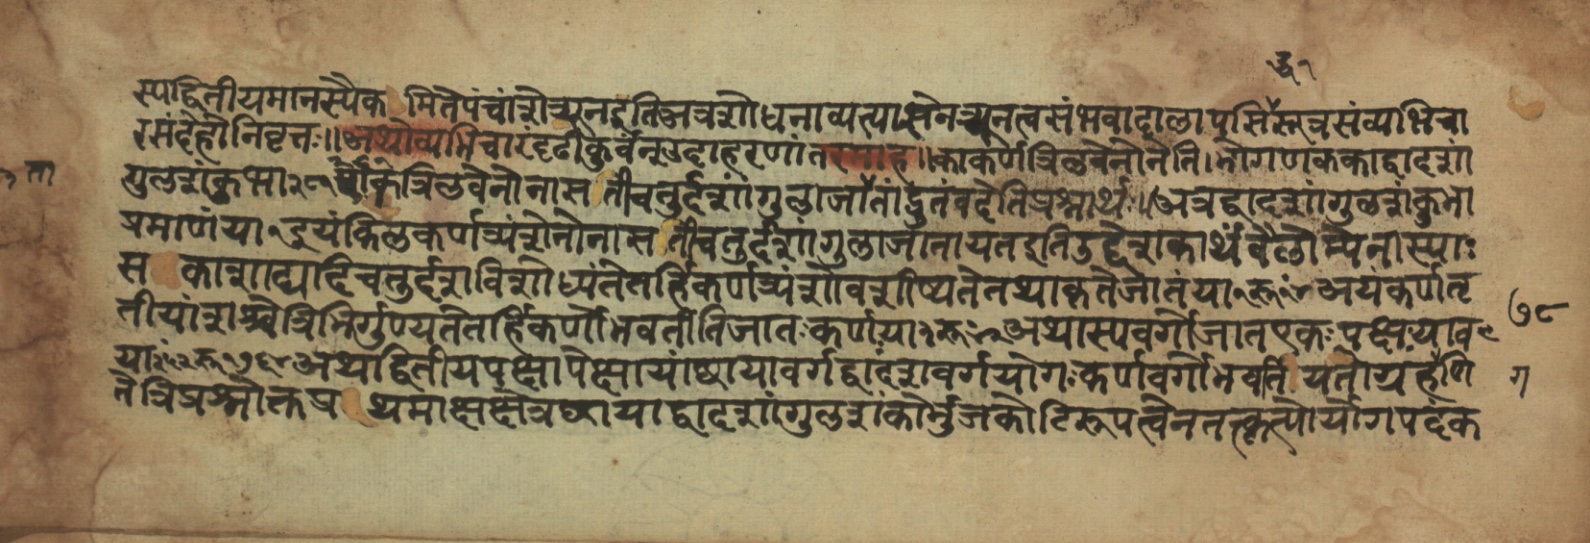 स्पद्वितीयमानस्यैकमितिपंचांशोच्यूनइतिअत्रशोधनाव्यत्यासेनच्यूनत्वसंभवादालापसिस्तत्रसंव्याभिचा
रसंदेहोनिवृत्तः॥अथोव्यभिचारंदृढीकुर्वन्उदाहरणांतरमाह॥काकर्णत्रिलवेनोनेति।भोगणककाद्वादशां
गुलशंकुभा कत्रिलवेनोनासतीचतुर्दशांगुलाजातांद्रुतंवदेतिप्रश्नार्थः॥अत्रद्वादशांगुलशंकुभा
प्रमाणंया१इयंकिलकर्णत्र्यंशेनोनासतीचतुर्दशांगुलाजातायतइतिउद्देशकार्थं
सकाशाद्यादिचतुर्दशविशोध्यंतेतर्हिकर्णत्र्यंशोवशिष्यतेतथाकृतेजातंया१रू१४अयंकर्णतृ
तीयांशश्चेत्रिभिर्गुण्यततेतर्हिकर्णोभवतीतिजातःकर्णःया३रू४२अथास्यवर्गोजातएकःपक्षःयाव९
या२५२रू१७६४अथद्वितीयपक्षापेक्षायांछायावर्गद्वादशवर्गयोगःकर्णवर्गोभवतियतोग्रहगणि
तेत्रिप्रश्नोक्तप्रथमाक्षक्षेत्रछायाद्वादशांगुलशंकोर्भुजकोटिरूपत्वेनतत्कृत्योर्योगपदंक
७८